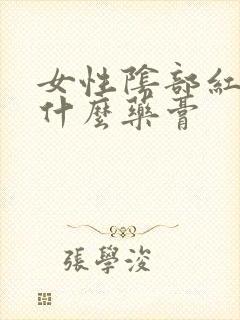 女性陰部紅
什麼藥膏
張學浚